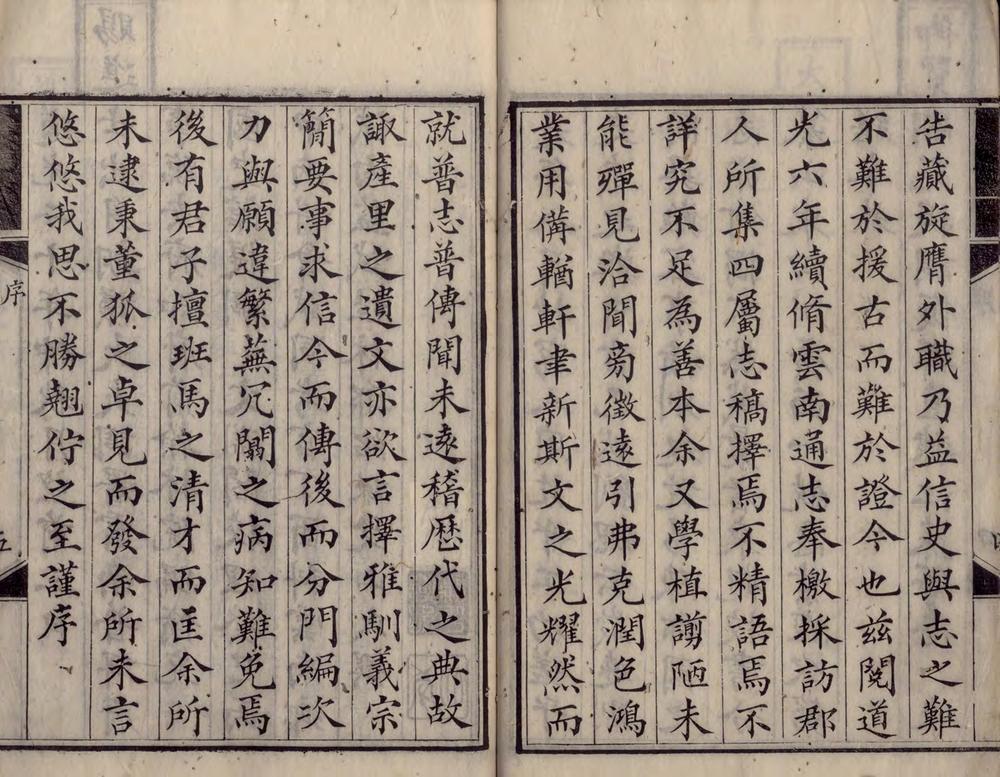 告藏旋膺外職乃益信史與志之難
不難於援古而難於證今也兹閱道
光六年續脩雲南通志奉檄採訪郡
人所集四屬志稿擇焉不精語焉不
詳究不足為善本余又學植譾陋未
能殫見洽聞旁徵遠引弗克潤色鴻
業用備輶軒聿新斯文之光耀然而
就普志普傳聞未遠稽歷代之典故
諏產里之遺文亦欲言擇雅馴義宗
簡要事求信今而傳後而分門編次
力與願違繁蕪冗闒之病知難免焉
後有君子擅班馬之清才而匡余所
未逮秉董狐之卓見而發余所未言
悠悠我思不勝翹佇之至謹序
序
五